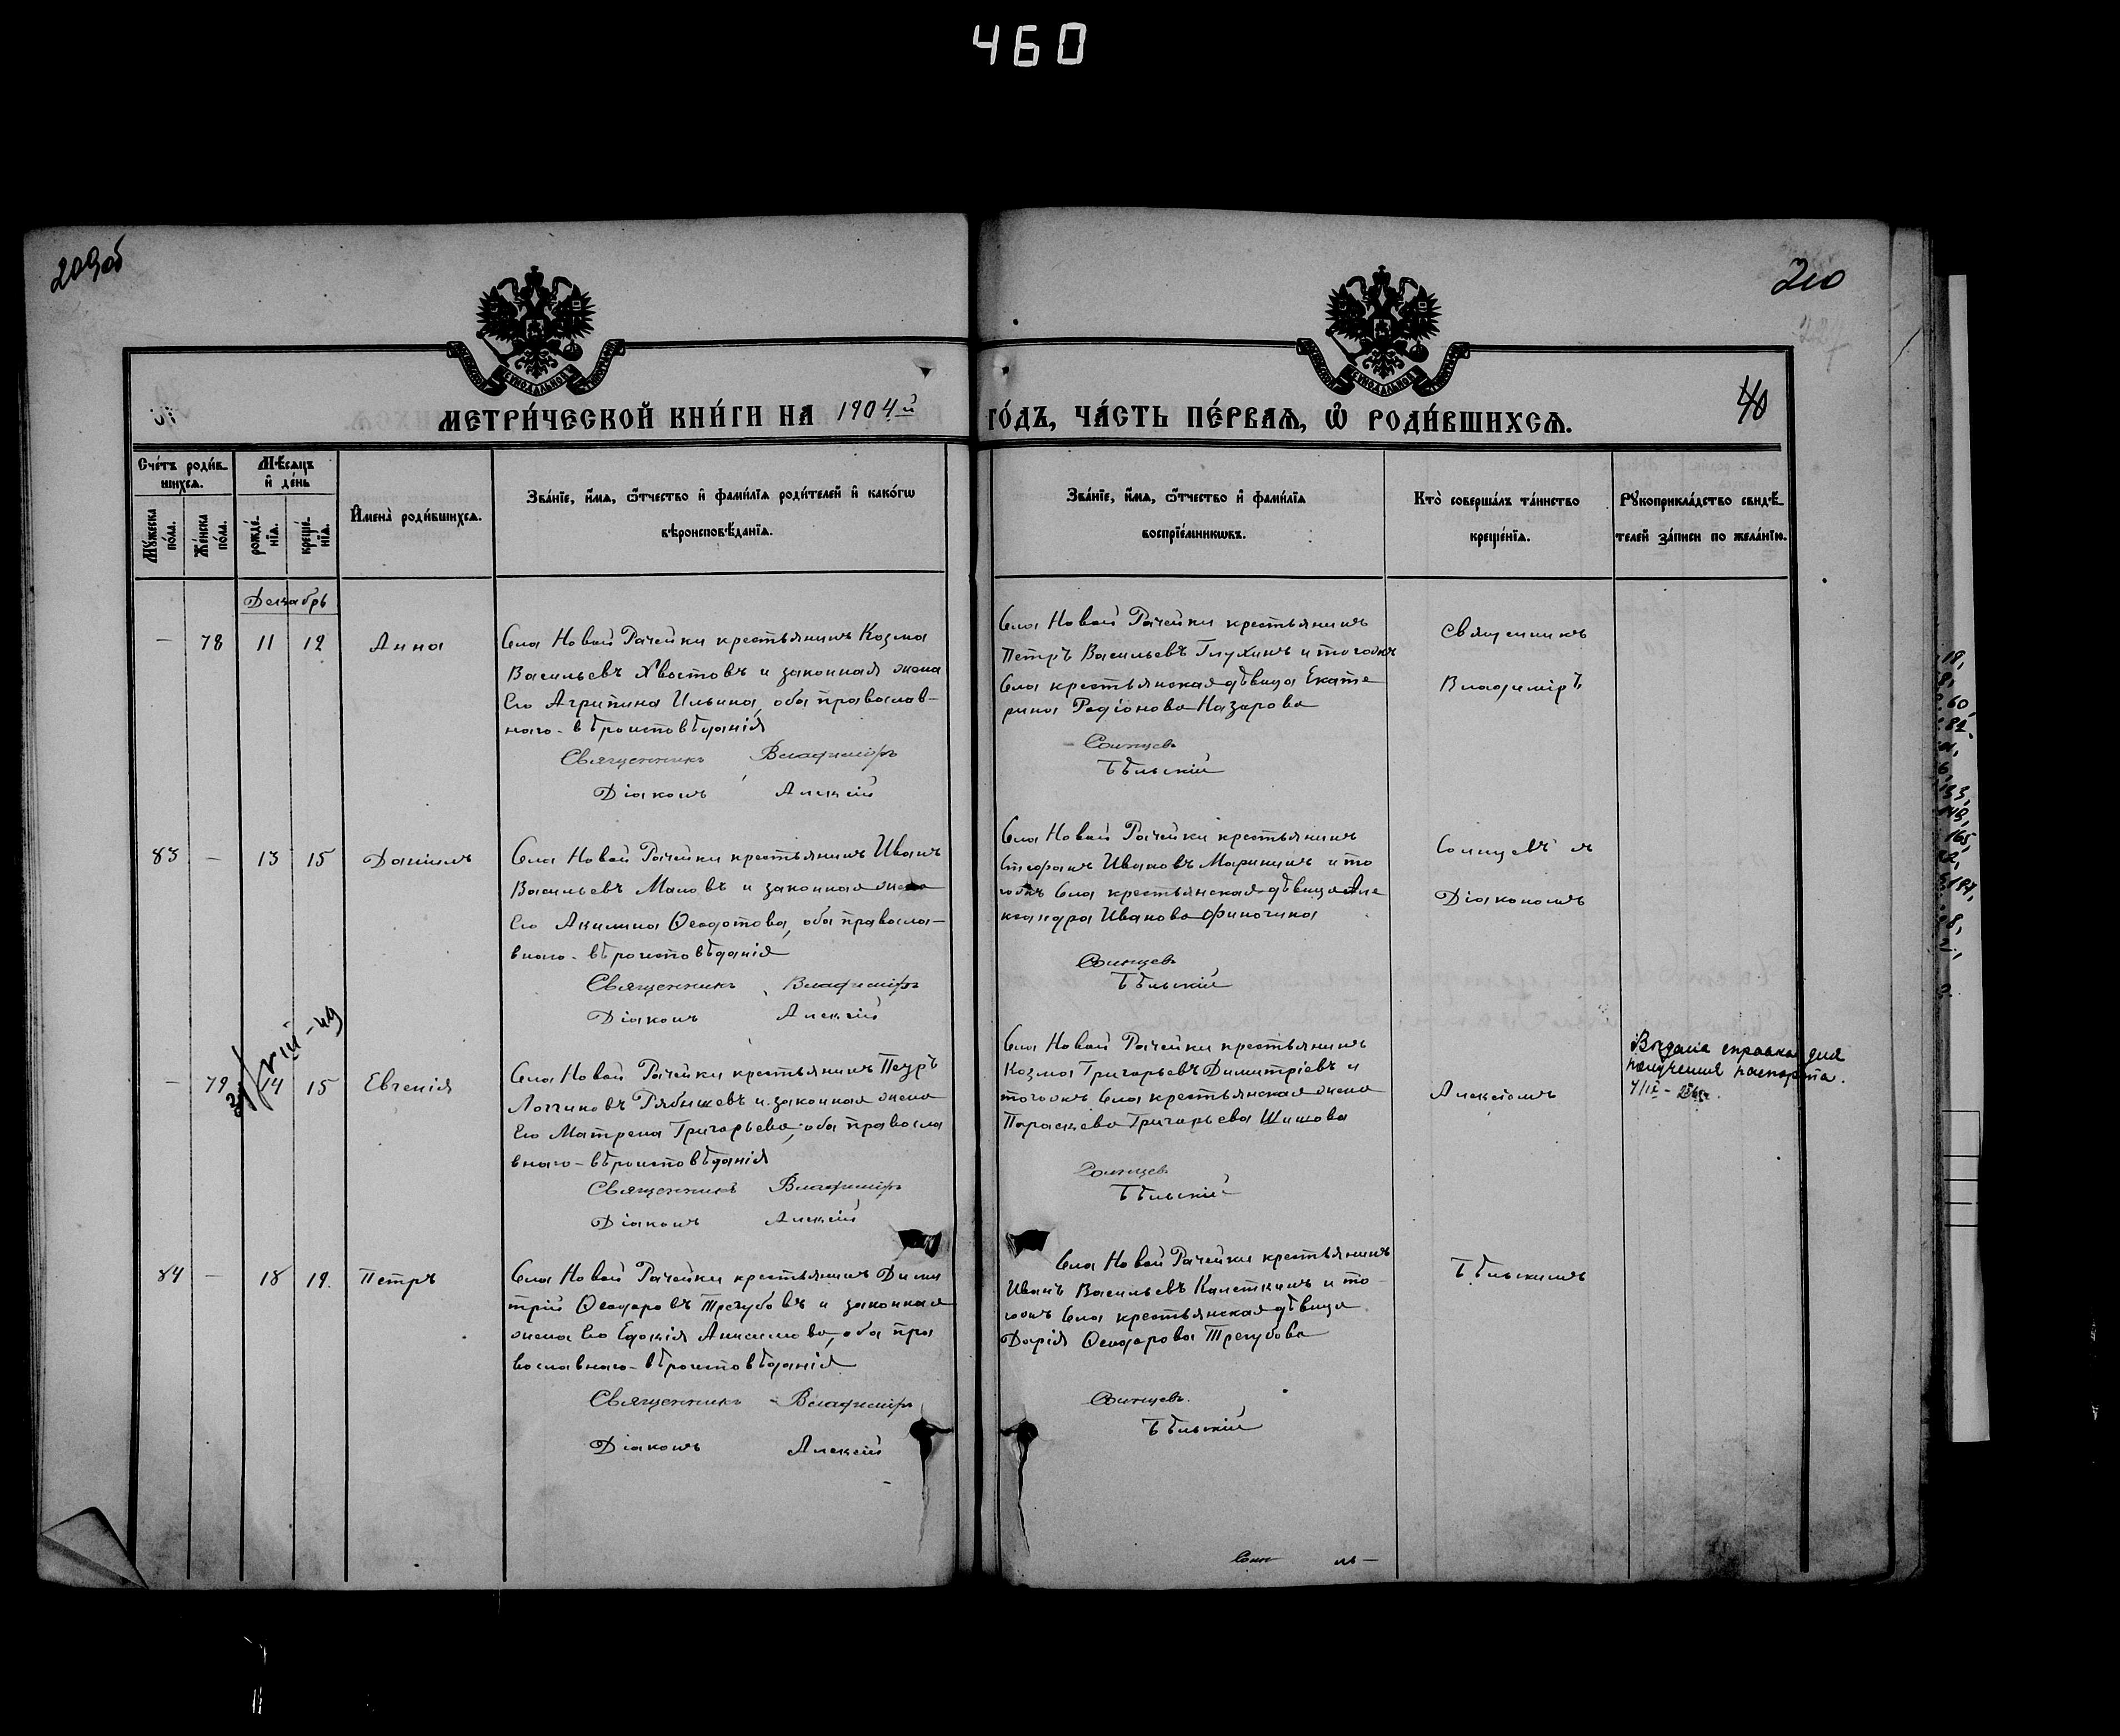 460
209об
210
40
МЕТРИ́ЧЕСКОЙ КНИ́ГИ НА 1904й
ГО́ДЪ, ЧА́СТЬ ПЕ́РВАѦ, Ѡ҆ РОДИ́ВШИХСѦ.
Сче́тъ роди́в-
шихсѧ.
Мѣ́сѧцъ
и҆ де́нь
Мꙋ́жеска по́ла.
Же́нска по́ла.
рожде́-нїѧ.
креще́-нїѧ.
И҆мена̀ роди́вшихсѧ.
Зва́нїе, и҆́мѧ, ѻ҆́тчество и҆ фами́лїѧ роди́телей и҆ како́гѡ
вѣроисповѣ́данїѧ.
Зва́нїе, и҆́мѧ, ѻ҆́тчество и҆ фами́лїѧ
воспрїе́мникѡвъ.
Кто̀ соверша́лъ та́инство
креще́нїѧ.
Рꙋкоприкла́дство свидѣ́-
телей за́писи по жела́нїю.
Декабрь
— 78 11 12 Анна
Села Новой Рачейки крестьянинъ Козма
Васильевъ Хвостовъ и законная жена
Его Агрипина Ильина, оба православ-
наго вѣроисповѣданія
Священникъ Владиміръ
Діаконъ Алексій
Села Новой Рачейки крестьянинъ
Петръ Васильевъ Глухинъ и тогожъ
Села крестьянская дѣвица Екате
рина Родіонова Назарова
Солнцевъ
Бѣльскій
Священникъ
Владиміръ
83 — 13 15 Даніилъ
Села Новой Рачейки крестьянинъ Иванъ
Васильевъ Маловъ и законная жена
Его Акилина Ѳеодотова, оба правосла-
внаго вѣроисповѣданія
Священникъ Владиміръ
Діаконъ Алексій
Села Новой Рачейки крестьянинъ
Стефанъ Ивановъ Марининъ и то
гожъ Села крестьянская дѣвица Але
ксандра Иванова Финогина
Солнцевъ
Бѣльскій
Солнцевъ съ
Діакономъ
— 79 14 15 Евгенія
Села Новой Рачейки крестьянинъ Петръ
Логгиновъ Рябышевъ и законная жена
Его Матрена Григорьева, оба правосла
внаго вѣроисповѣданія
Священникъ Владиміръ
Діаконъ Алексій
Села Новой Рачейки крестьянинъ
Козма Григорьевъ Димитріевъ и
тогожъ Села крестьянская жена
Параскева Григорьева Шишова
Солнцевъ
Бѣльскій
Алексіемъ
Выдана справка для
получения паспорта.
84 — 18 19. Петръ
Села Новой Рачейки крестьянинъ Дими
трій Ѳеодоровъ Трегубовъ и законная
жена Его Евдокія Анисимова, оба пра
вославнаго вѣроисповѣданія
Священникъ Владиміръ
Діаконъ Алексій
Села Новой Рачейки крестьянинъ
Иванъ Васильевъ Калсткинъ и то-
гожъ Села крестьянская дѣвица
Дарія Ѳеодорова Трегубова
Солнцевъ.
Бѣльскій
Бѣльскимъ